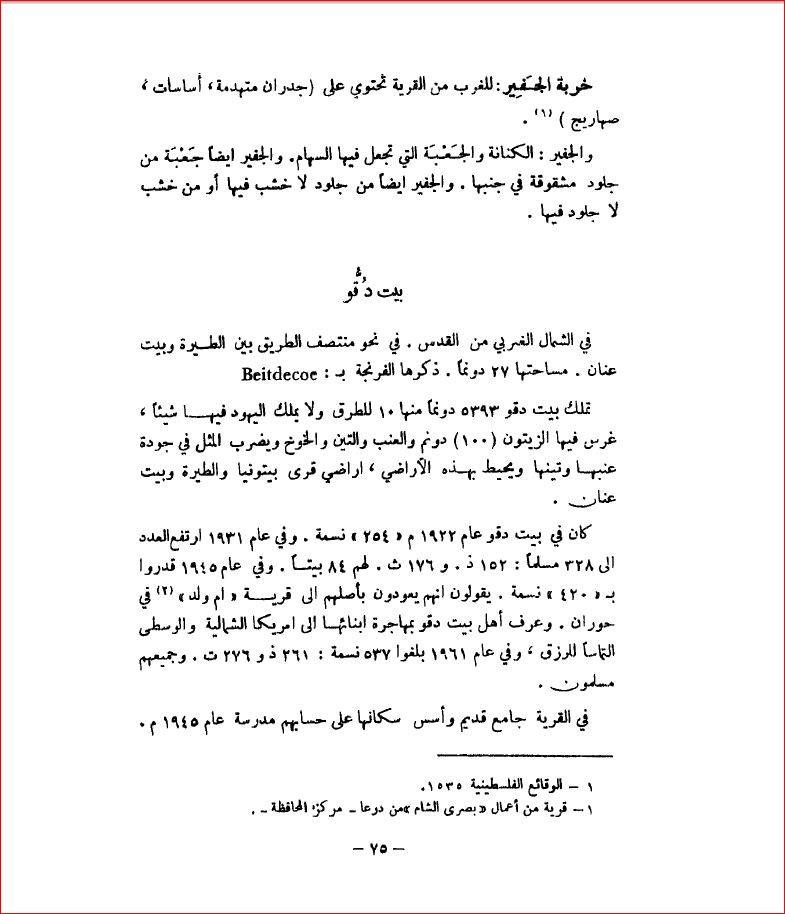 خربة الجَفِير : للغرب من القرية تحتوي على ( جدران متهدمة ، أساسات ،
صهاريج ) (١) .
والجفير : الكنانة والجَعْبَة التي تجعل فيها السهام . والجفير ايضاً جَعْبَة من
جلود مشقوقة في جنبها . والجفير ايضاً من جلود لا خشب فيها أو من خشب
لا جلود فيها .
بيت دُقُّو
في الشمال الغربي من القدس . في نحو منتصف الطريق بين الطيرة وبيت
عنان . مساحتها ٢٧ دونماً . ذكرها الفرنجة بـ : Beitdecoe
تملك بيت دقو ٥٣٩٣ دونماً منها ١٠ للطرق ولا يملك اليهود فيها شيئاً ،
غرس فيها الزيتون (١٠٠) دونم والعنب والتين والخوخ ويضرب المثل في جودة
عنبها وتينها ويحيط بهذه الأراضي ، اراضي قرى بيتونيا والطيرة وبيت
عنان .
كان في بيت دقو عام ١٩٢٢ م « ٢٥٤ » نسمة . وفي عام ١٩٣١ ارتفع العدد
الى ٣٢٨ مسلماً : ١٥٢ ذ . و ١٧٦ ث . لهم ٨٤ بيتاً . وفي عام ١٩٤٥ قدروا
بـ « ٤٢٠ » نسمة . يقولون انهم يعودون بأصلهم الى قرية « ام ولد » (٢) في
حوران . وعرف أهل بيت دقو بمهاجرة ابنائها الى امريكا الشمالية والوسطى
التماساً للرزق ، وفي عام ١٩٦١ بلغوا ٥٣٧ نسمة : ٢٦١ ذ و ٢٧٦ ت . وجميعهم
مسلمون .
في القرية جامع قديم وأسس سكانها على حسابهم مدرسة عام ١٩٤٥ م .
١ – الوقائع الفلسطينية ١٥٣٥ .
١ – قرية من أعمال « بصرى الشام » من دوعا – مركز المحافظة – .
– ٧٥ –